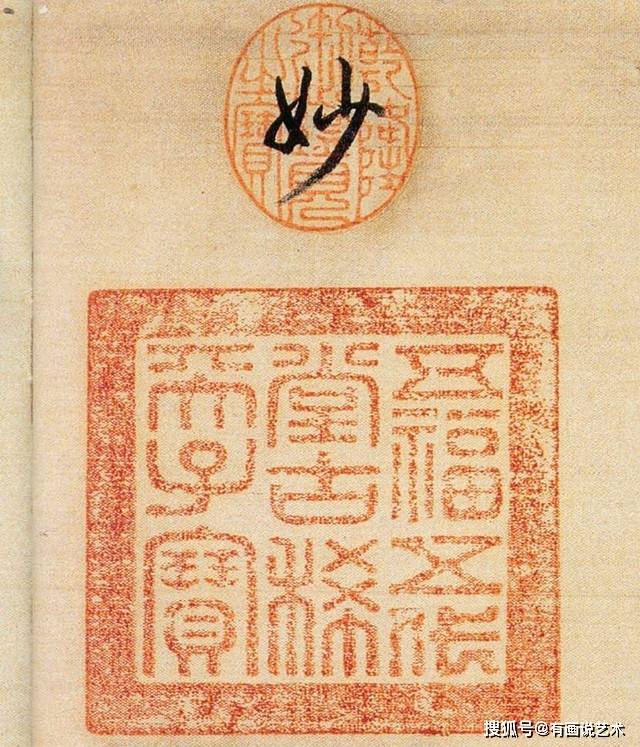 妙
乾隆
御覽
之寶
五福五代
堂古稀
天子寶
搜狐号@有画说艺术